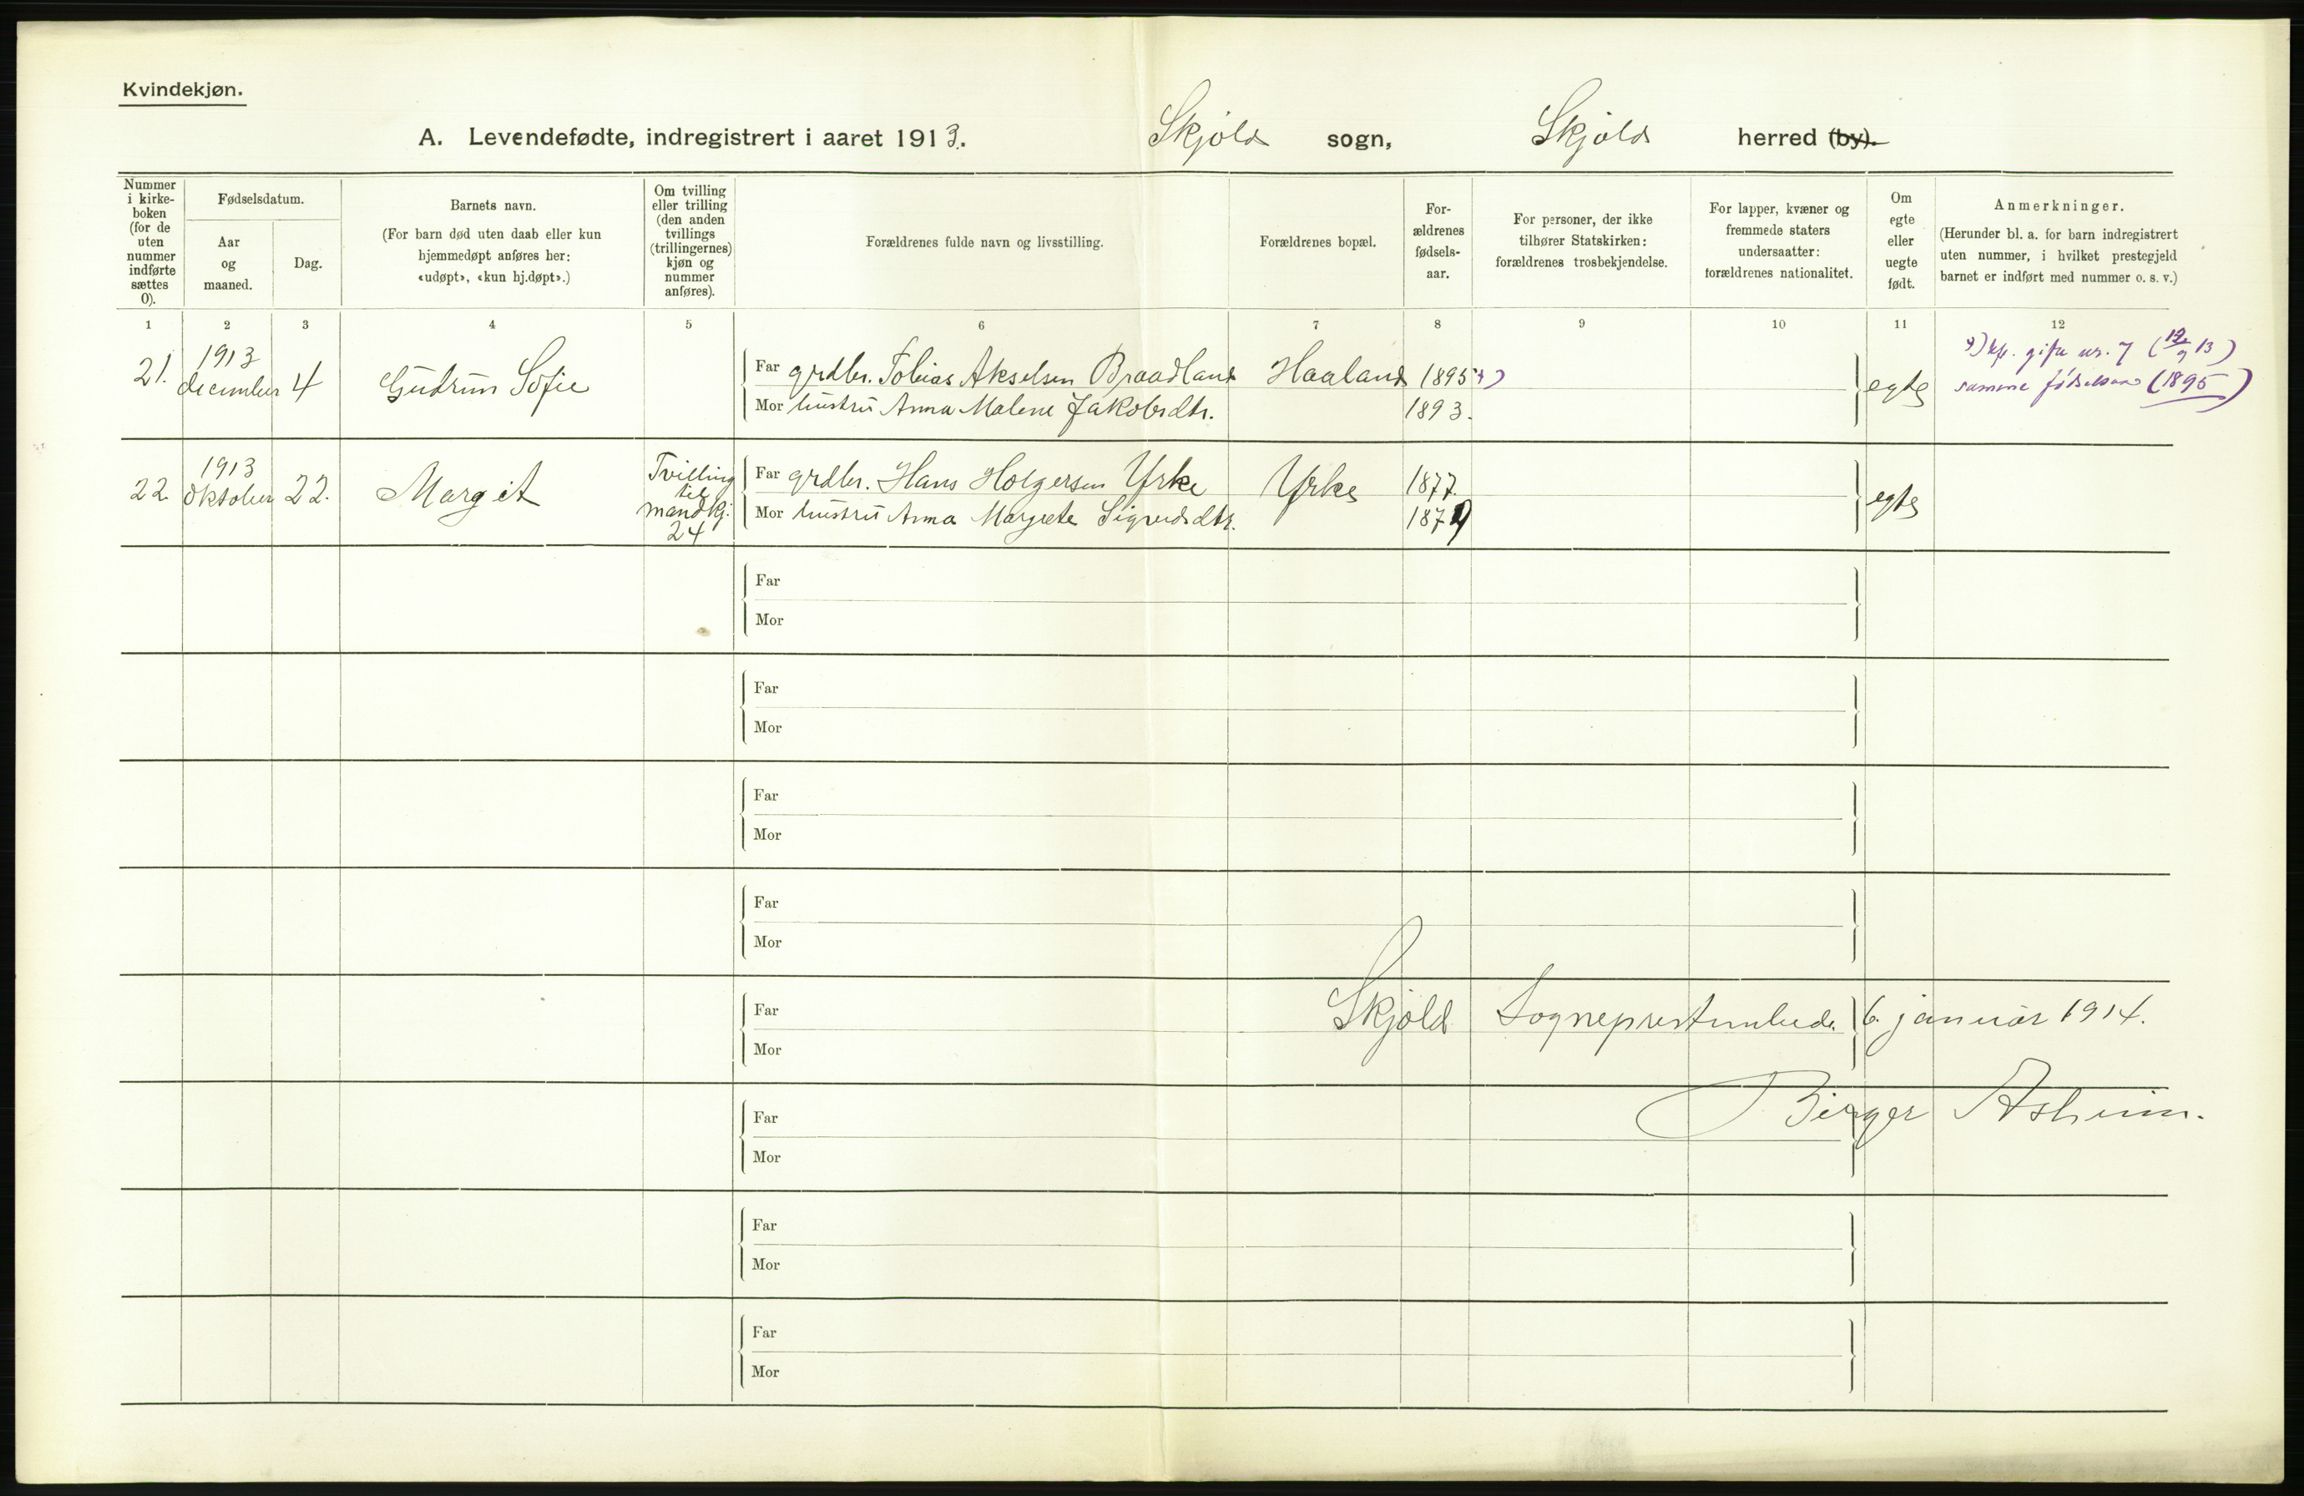 Kvindekjøn.
A. Levendefødte, indregistrert i aaret 1913. Skjold sogn, Skjold herred (by).
Nummer i kirkeboken (for de uten nummer indførte sættes 0).
Fødselsdatum.
Aar og maaned.
Dag.
Barnets navn.
(For barn død uten daab eller kun hjemmedøpt anføres her: «udøpt», «kun hj.døpt».)
Om tvilling eller trilling (den anden tvillings (trillingernes) kjøn og nummer anføres).
Forældrenes fulde navn og livsstilling.
Forældrenes bopæl.
For-
ældrenes
fødsels-
aar.
For personer, der ikke
tilhører Statskirken:
forældrenes trosbekjendelse.
For lapper, kvæner og
fremmede staters
undersaatter:
forældrenes nationalitet.
Om
egte
eller
uegte
født.
Anmerkninger.
(Herunder bl. a. for barn indregistrert
uten nummer, i hvilket prestegjeld
barnet er indført med nummer o. s. v.)
1 2 3 4 5 6 7 8 9 10 11 12
21. 1913 december 4 Gudrun Sofie
Far grdbr. Tobias Akselsen Braadland Haaland 1895
Mor hustru Anna Malene Jakobsdtr. 1893.
egte
gifte nr. 7
samme fødselsaar (1895)
22 1913 Oktober 22. Margit
Tvilling
til
mandkj.
24
Far grdbr. Hans Holgersen Yrke Yrke 1877.
Mor hustru Anna Margrete Sigvardsdtr. 1879
egte
Far
Mor
Far
Mor
Far
Mor
Far
Mor
Far
Skjold Sogneprestembede 6. januar 1914.
Mor
Birger Asheim.
Far
Mor
Far
Mor
Far
Mor